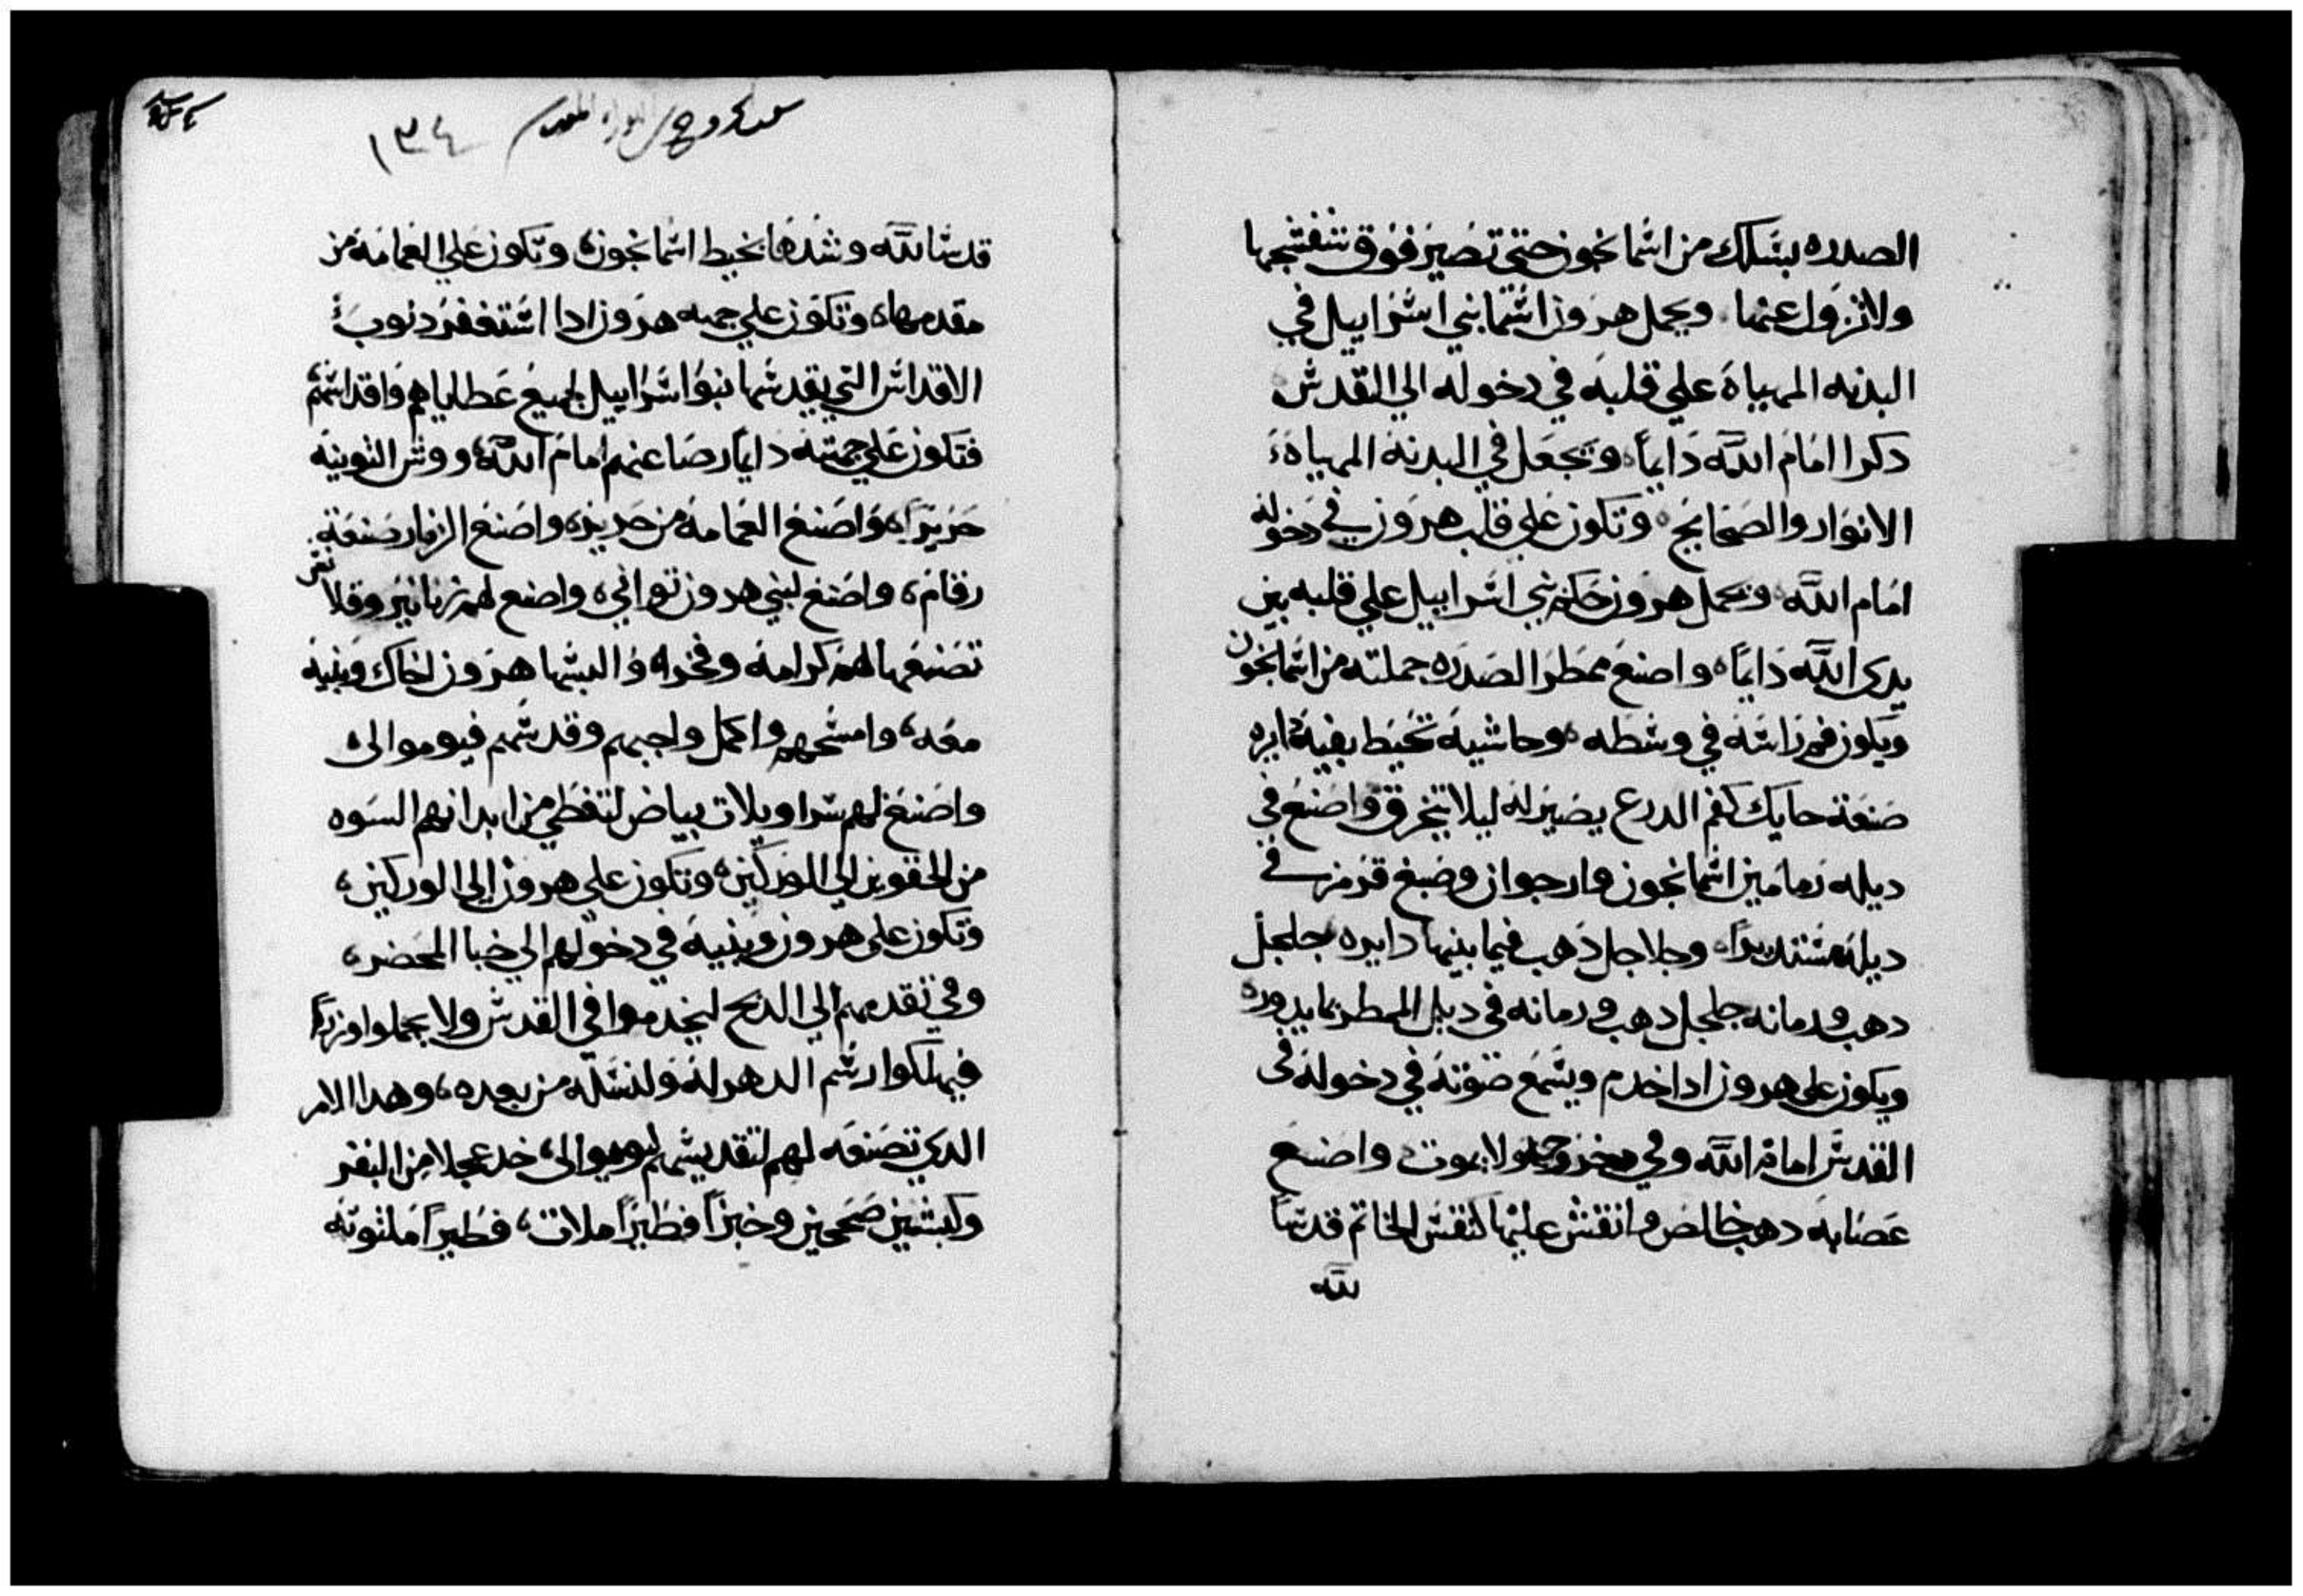 الصدره بسلك من اسمانجون حتى تصير فوق شفشجها
ولا تزول عنها ويحمل هرون اسما بني اسراييل في
البدنه المهياه علي قلبه في دخوله الي القدس
دكرا امام الله دايما وتجعل في البدنه المهياه
الانوار والصحايح وتكون علي قلب هرون في دخوله
امام الله ويحمل هرون حكم بني اسراييل علي قلبه بين
يدى الله دايما واصنع ممطر الصدره جملته من اسمانجون
ويكون فم راسه في وسطه وحاشيه تحيط بفيه دايره
صنعة حايك كفم الدرع يصير له ليلا يتخرق واصنع في
ديله رمامين اسمانجون وارجوان وصبغ قرمز في
ديله مستديرا وجلاجل دهب فيما بينها دايره جلجل
دهب ورمانه جلجل دهب ورمانه في ديل الممطر بما يدوره
ويكون على هرون ادا خدم ويسمع صوته في دخوله في
القدس امام الله وفي خروجه ولا يموت واصنع
عصابه دهب خالص وانقش عليها كنقش الخاتم قدسا
لله
١٣٤
قدسا لله وشدها بخيط اسمانجون وتكون علي العمامه من
مقدمها وتكون علي جبهه هرون ادا استغفر دنوب
الاقداس التي يقدسها بنو اسراييل لجميع عطاياهم واقداسهم
فتكون علي جبهته دايما رضا عنهم امام الله ووش التونيه
حريرا واصنع العمامه من حرير واصنع الزنار صنعة
رقام واصنع لبني هرون تواني واصنع لهم زنانير وقلانس
تصنعها لهم كرامه وفخرا والبسها هرون اخاك وبنيه
معه وامسحهم واكمل واجبهم وقدسهم فيوموا لى
واصنع لهم سراويلات بياض لتغطي من ابدانهم السوه
من الحقوين الي الوركين وتكون علي هرون الي الوركين
وتكون على هرون وبنيه في دخولهم الي خبا المحضر
وفي تقدمهم الي المدبح ليخدموا في القدس ولا يحملوا وزرا
فيهلكوا رسم الدهر له ولنسله من بعده وهدا الامر
الدي تصنعه لهم لتقديسهم ليوموا لى خد عجلا من البقر
وكبشين صحيحين وخبزا فطيرا ملات فطيرا ملتوته